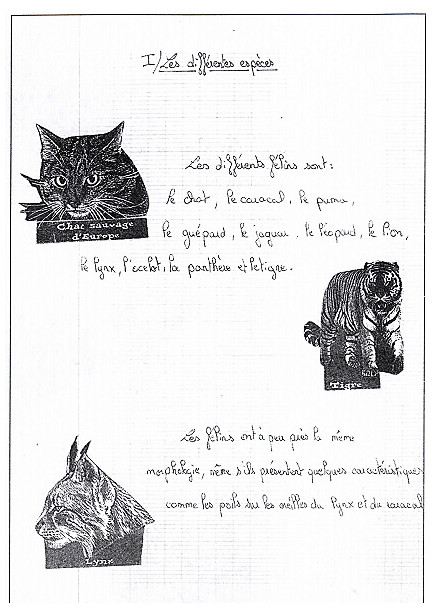 I/ Les différentes espèces
Les différents félins sont:
le chat, le caracal, le puma,
le guépard, le jaguar, le léopard, le lion,
le lynx, l'ocelot, la panthère et le tigre.
Chat sauvage
d'Europe
Tigre
Les félins ont à peu près la même
morphologie, même s'ils présentent quelques caractéristiques
comme les poils sur les oreilles du lynx et du caracal
Lynx